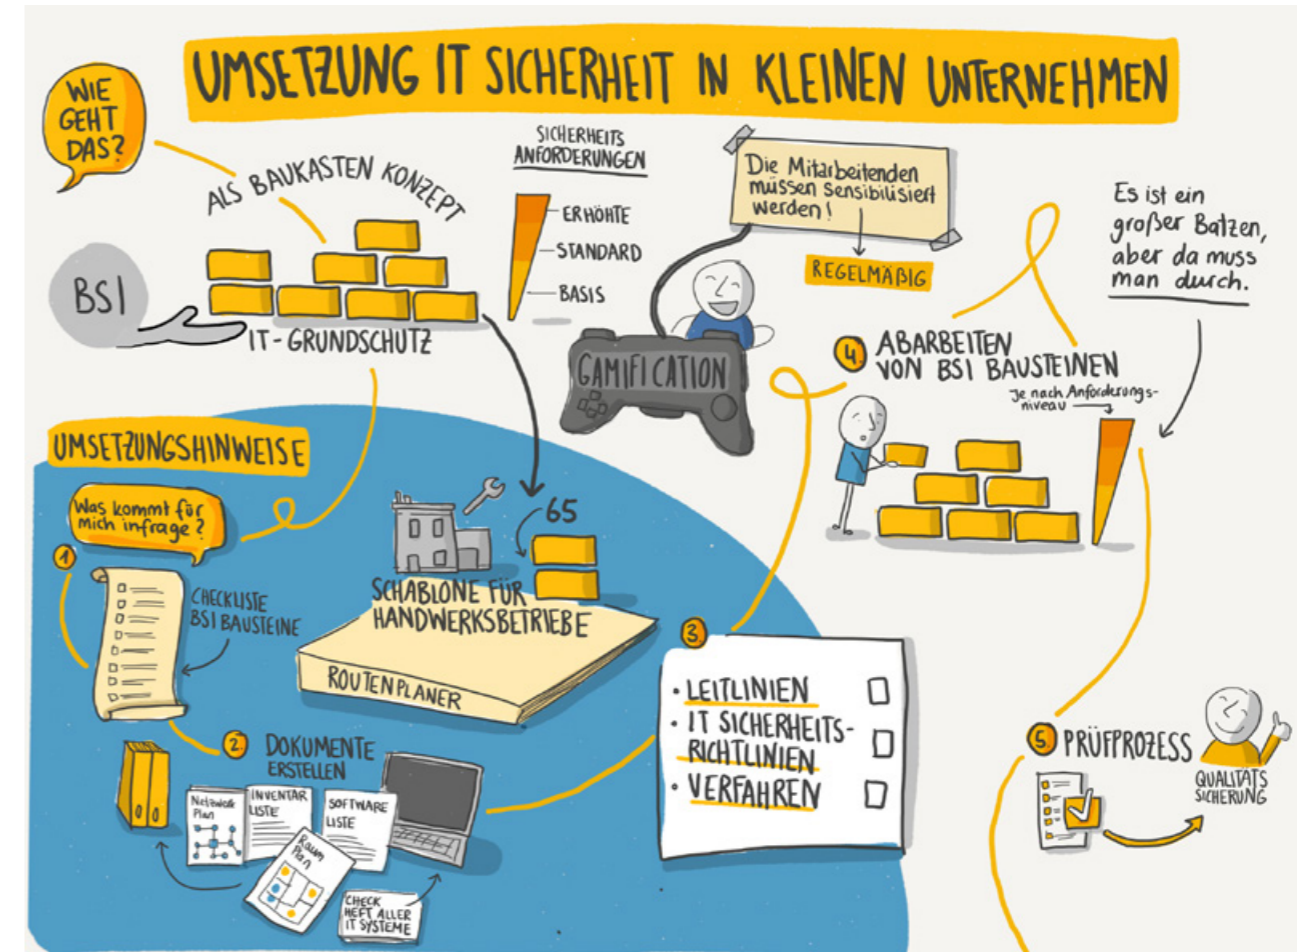 UMSETZUNG IT SICHERHEIT IN KLEINEN UNTERNEHMEN
WIE
GEHT
DAS?
ALS BAUKASTEN KONZEPT
BSI
IT-GRUNDSCHUTZ
SICHERHEITS
ANFORDERUNGEN
ERHÖHTE
STANDARD
BASIS
Die Mitarbeitenden
müssen sensibilisiert
werden!
REGELMÄßIG
GAMIFICATION
Es ist ein
großer Batzen,
aber da muss
man durch.
4.
ABARBEITEN
VON BSI BAUSTEINEN
Je nach Anforderungs-
niveau
UMSETZUNGSHINWEISE
Was kommt für
mich infrage?
1
CHECKLISTE
BSI BAUSTEINE
65
SCHABLONE FÜR
HANDWERKSBETRIEBE
ROUTENPLANER
2.
DOKUMENTE
ERSTELLEN
Netzwerk
Plan
INVENTAR
LISTE
SOFTWARE
LISTE
Raum
Plan
CHECK
HEFT ALLER
IT SYSTEME
3.
• LEITLINIEN
• IT SICHERHEITS-
RICHTLINIEN
• VERFAHREN
5.
PRÜFPROZESS
QUALITÄTS
SICHERUNG